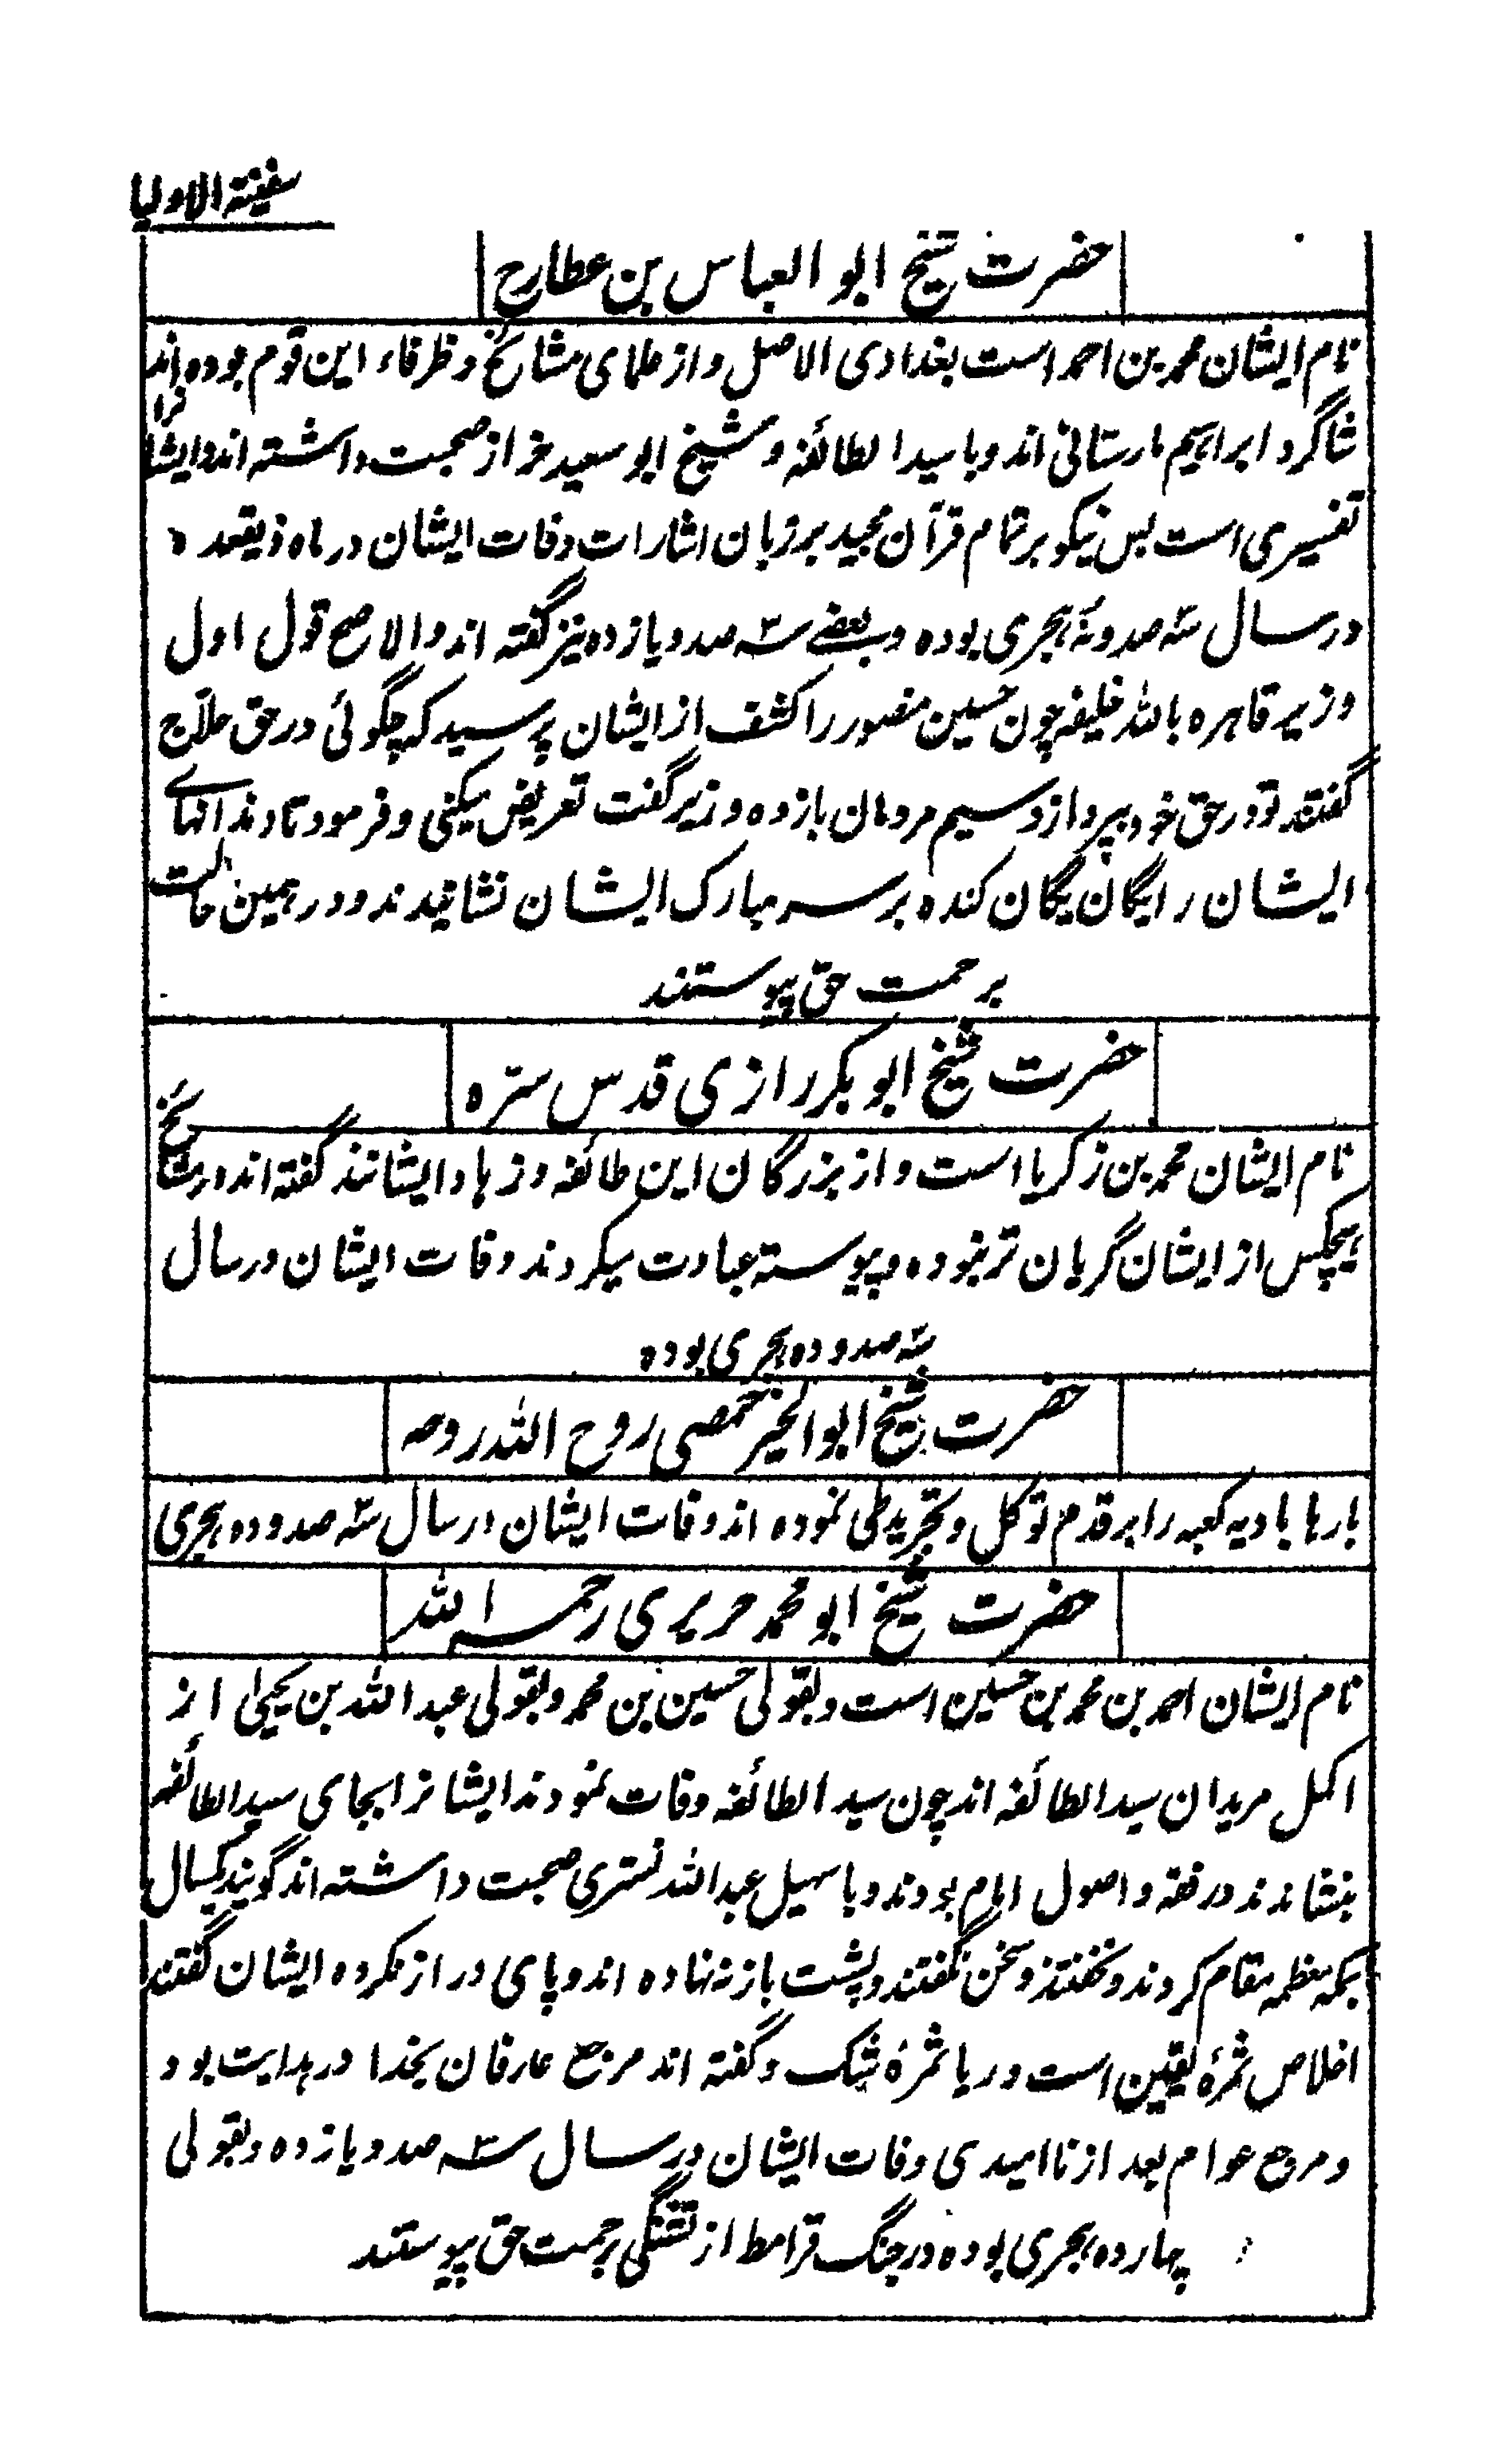 سفینة الاولیا
حضرت شیخ ابو العباس بن عطارح
نام ایشان محمد بن احمد است بغدادی الاصل و از علمای مشائخ و ظرفاء این قوم بوده اند
شاگرد ابراہیم مارستانی اند و با سید الطائفہ و شیخ ابو سعید خراز صحبت داشتہ اند و ایشانرا
تفسیری است بس نیکو بر تمام قرآن مجید بر زبان اشارات وفات ایشان در ماہ ذیقعدہ
در سال سہ صد و نُہ ہجری بودہ و بعضے سہ صد و یازدہ نیز گفتہ اند و الاصح قول اول
وزیر قاہرہ باللہ خلیفہ چون حسین منصور را کشف از ایشان پرسید کہ چگوئی در حق حلاّج
گفتند تو در حق خود بپرداز و سیم مردمان بازدہ وزیر گفت تعریض میکنی و فرمود تا دندانہای
ایشان را یگان یگان کندہ بر سر مبارک ایشان نشانیدند و در ہمین حالت
برحمت حق پیوستند
حضرت شیخ ابو بکر رازی قدس سرّہ
نام ایشان محمد بن زکریا است و از بزرگان این طائفہ و زہاد ایشانند گفتہ اند در مشائخ
ہیچکس از ایشان گریان تر نبودہ و پیوستہ عبادت میکردند وفات ایشان در سال
سہ صد و دہ ہجری بودہ
حضرت شیخ ابو الخیر حمصی روح اللہ روحہ
بارہا بادیہ کعبہ را بر قدم توکل و تجرید طی نمودہ اند وفات ایشان در سال سہ صد و دہ ہجری
حضرت شیخ ابو محمد حریری رحمہ اللہ
نام ایشان احمد بن محمد بن حسین است و بقولی حسین بن محمد و بقولی عبد اللہ بن یحییٰ از
اکمل مریدان سید الطائفہ اند چون سید الطائفہ وفات نمودند ایشانرا بجای سید الطائفہ
بنشاندند در فقہ و اصول امام بودند و با سہیل عبد اللہ تستری صحبت داشتہ اند گویند یکسال
بمکہ معظمہ مقام کردند و نخفتند و سخن نگفتند و پشت باز ننہادہ اند و پای دراز نکردہ ایشان گفتند
اخلاص ثمرۂ یقین است و ریا ثمرۂ شک و گفتہ اند مرجع عارفان بخدا در بدایت بود
و مرجع عوام بعد از ناامیدی وفات ایشان در سال سہ صد و یازدہ و بقولی
چہاردہ ہجری بودہ در جنگ قرامط از تشنگی برحمت حق پیوستند